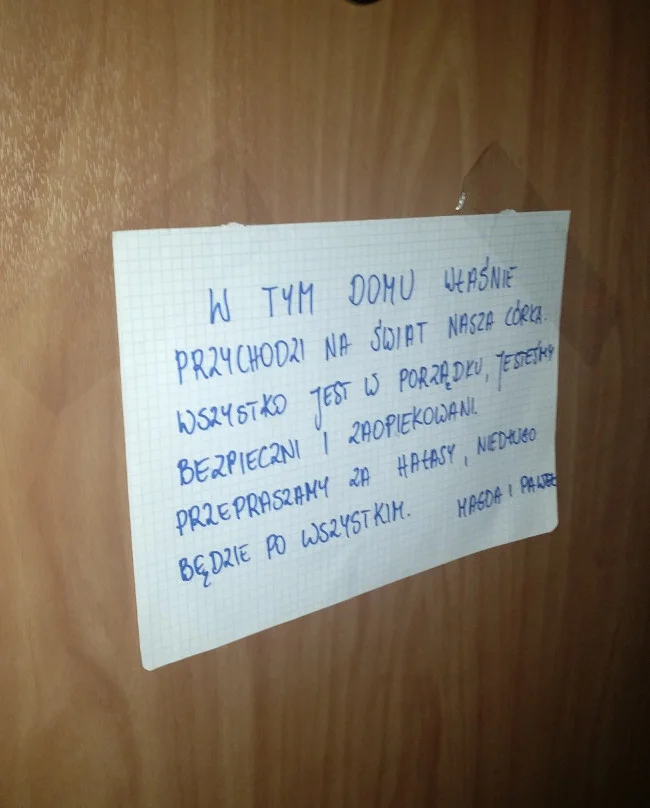 W TYM DOMU WŁAŚNIE
PRZYCHODZI NA ŚWIAT NASZA CÓRKA.
WSZYSTKO JEST W PORZĄDKU, JESTEŚMY
BEZPIECZNI I ZAOPIEKOWANI.
PRZEPRASZAMY ZA HAŁASY, NIEDŁUGO
BĘDZIE PO WSZYSTKIM. MAGDA I PAWEŁ